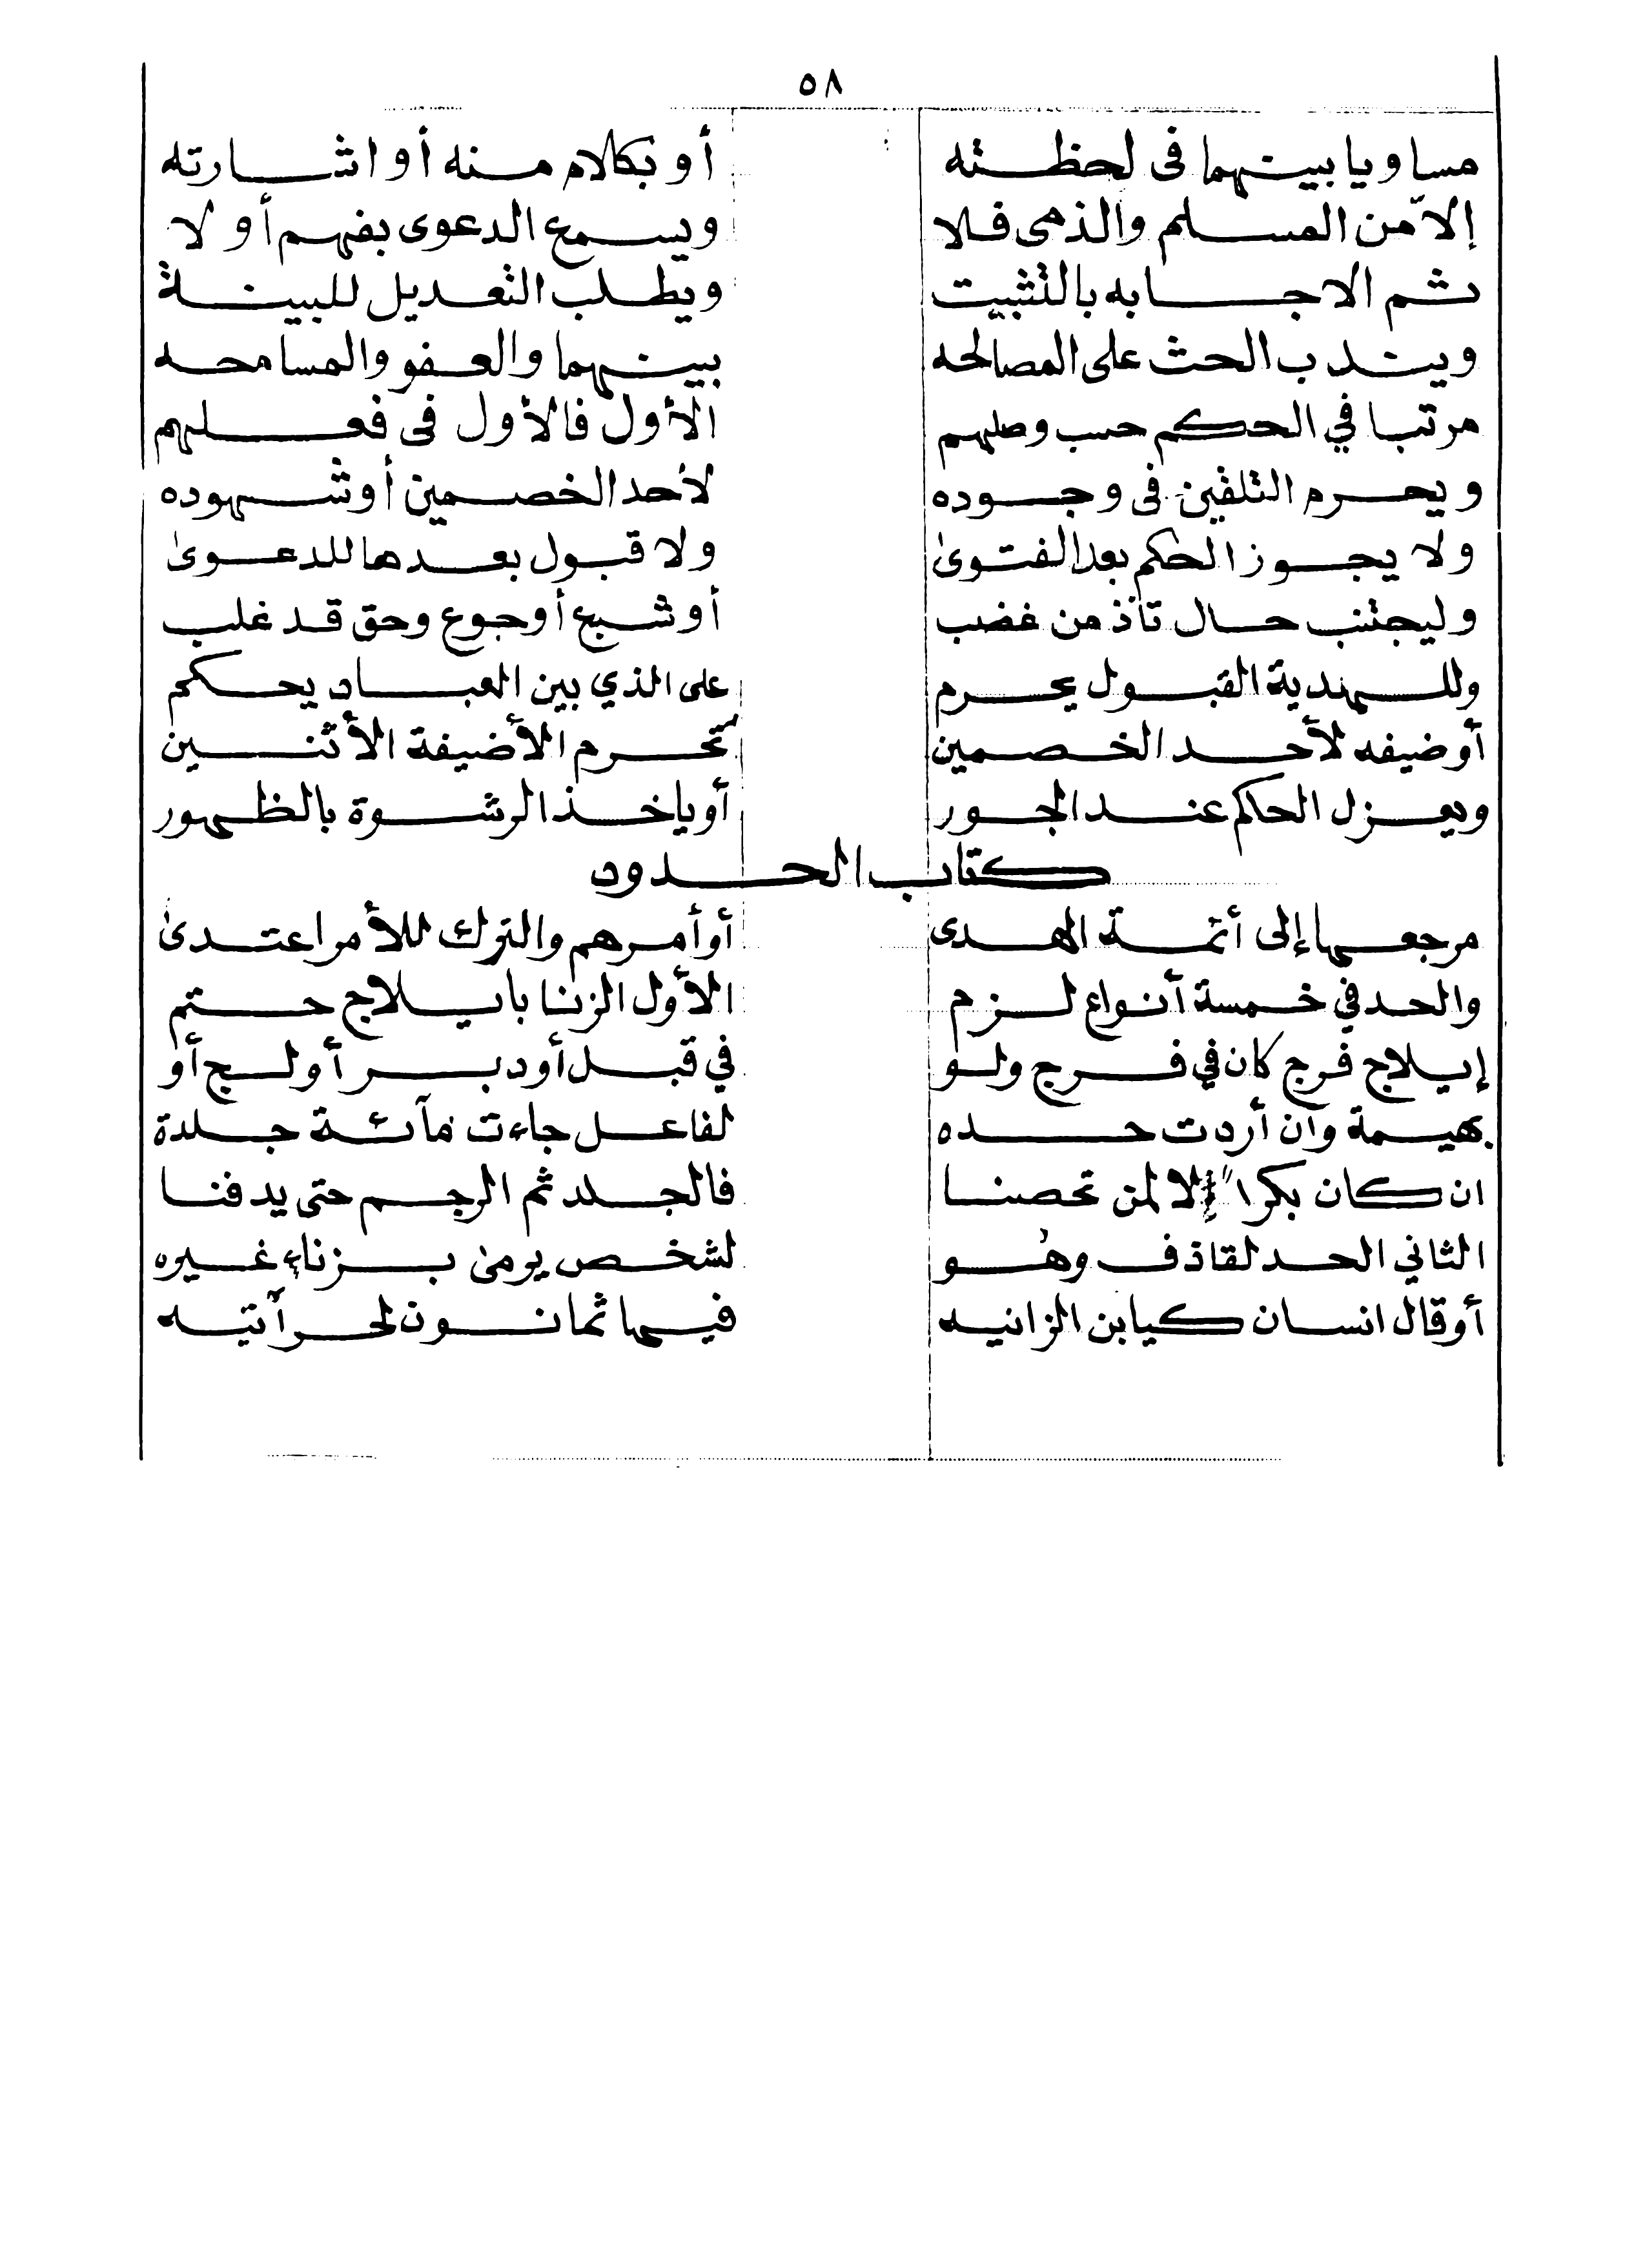 ٥٨
مساويا بينهما فى لحظته أو بكلام منه أو اشارته
إلاّ من المسلم والذمى فلا ويسمع الدعوى بفهم أو لا
ثم الاجابه بالتثبيت ويطلب التعديل للبينة
ويندب الحث على المصالحه بينهما والعفو والمسامحه
مرتبا في الحكم حسب وصلهم الأول فالأول فى فعلهم
ويحرم التلقين فى وجوده لأحد الخصمين أو شهوده
ولا يجوز الحكم بعد الفتوىٰ ولا قبول بعدها للدعوىٰ
وليجتنب حال تأذ من غضب أو شبع أو جوع وحق قد غلب
وللهدية القبول يحرم على الذي بين العباد يحكم
أو ضيفه لأحد الخصمين تحرم الأضيفة الأثنين
ويعزل الحاكم عند الجور أو ياخذ الرشوة بالظهور
كتاب الحدود
مرجعها إلى أئمة الهدى أو أمرهم والترك للأمر اعتدىٰ
والحد في خمسة أنواع لزم الأول الزنا بايلاج حتم
إيلاج فرج كان في فرج ولو في قبل أو دبر أولج أو
بهيمة وان أردت حده لفاعل جاءت مآئة جلدة
ان كان بكرا لا لمن تحصنا فالجلد ثم الرجم حتى يدفنا
الثاني الحد لقاذف وهو لشخص يرمىٰ بزناء غيره
أو قال انسان كيا بن الزانيه فيها ثمانون لحر آتيه